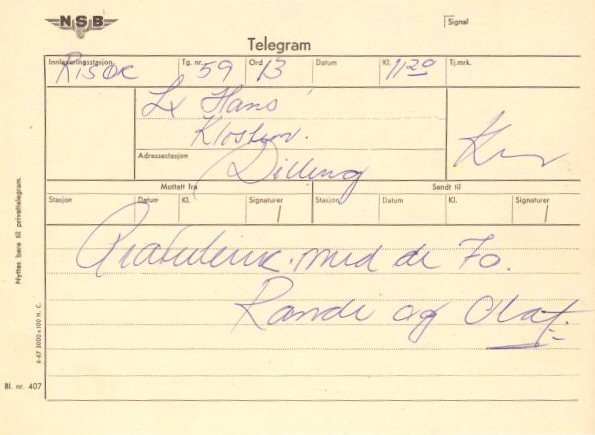 NSB
Signal
Telegram
Innleveringsstasjon Tg. nr. Ord Datum Kl. Tj.mrk.
Risør 59 13 11 20
Lx Hans
Kloster.
Adressestasjon
Dilling
Mottatt fra Sendt til
Stasjon Datum Kl. Signaturer Stasjon Datum Kl. Signaturer
Gratulerer med de 70.
Randi og Olaf.
Nyttes bare til privattelegram.
6-47 3000x100 H. C.
Bl. nr. 407